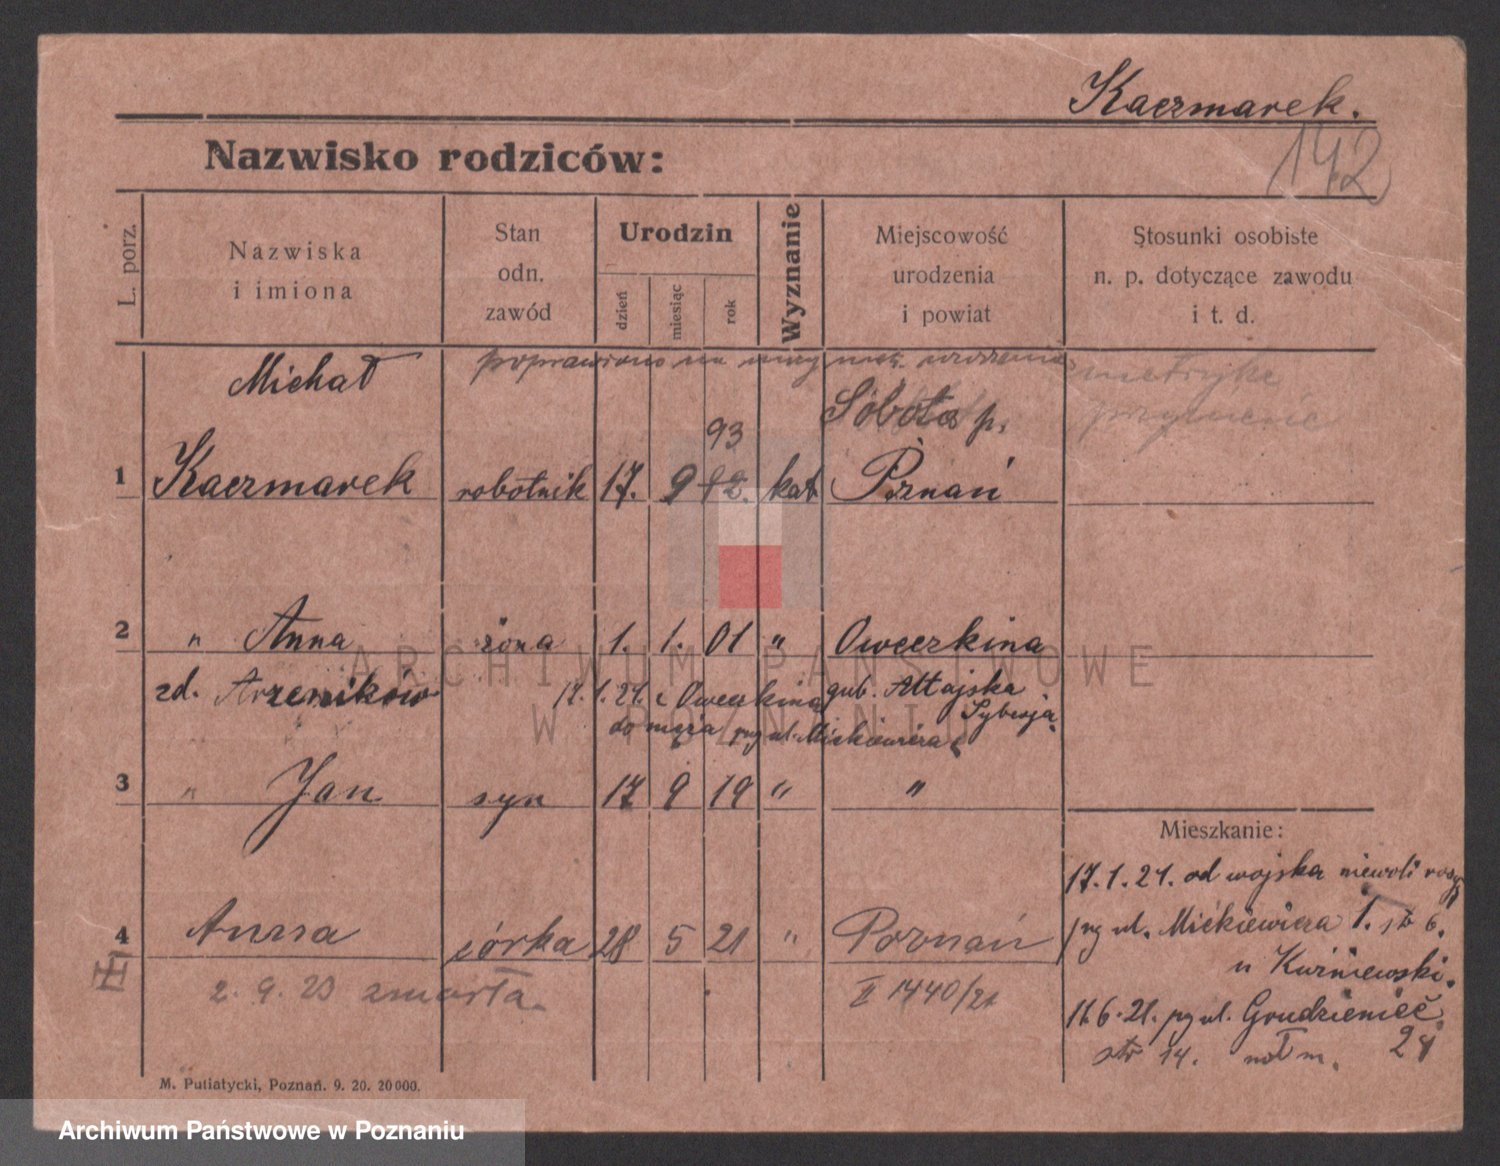 Kaczmarek.
142
Nazwisko rodziców:
L. porz.
Nazwiska
i imiona
Stan
odn.
zawód
Urodzin
dzień
miesiąc
rok
Wyznanie
Miejscowość
urodzenia
i powiat
Stosunki osobiste
n. p. dotyczące zawodu
i t. d.
poprawiono na urodzenia metryki
Michał
Sobota p.
93
1 Kaczmarek robotnik 17. 9 82. kat Poznań
2 " Anna żona 1. 1. 01 " Oweczkina
zd. Arzenikow 17.1.21. z Oweczkina gub. Ałtajska
Syberja.
do męża ul. Mickiewicza
3 " Jan syn 17 9 19 " "
Mieszkanie:
17.1.21. od wojska niewoli rosyj
ul. Mickiewicza 1. str 6.
4 Anna córka 28 5 21 " Poznań
2.9.23 zmarła.
II 1440/21
11.6.21. ul. Grudzieniec
str 14. 24
M. Putiatycki, Poznań. 9. 20. 20000.
ARCHIWUM PAŃSTWOWE
W POZNANIU
Archiwum Państwowe w Poznaniu